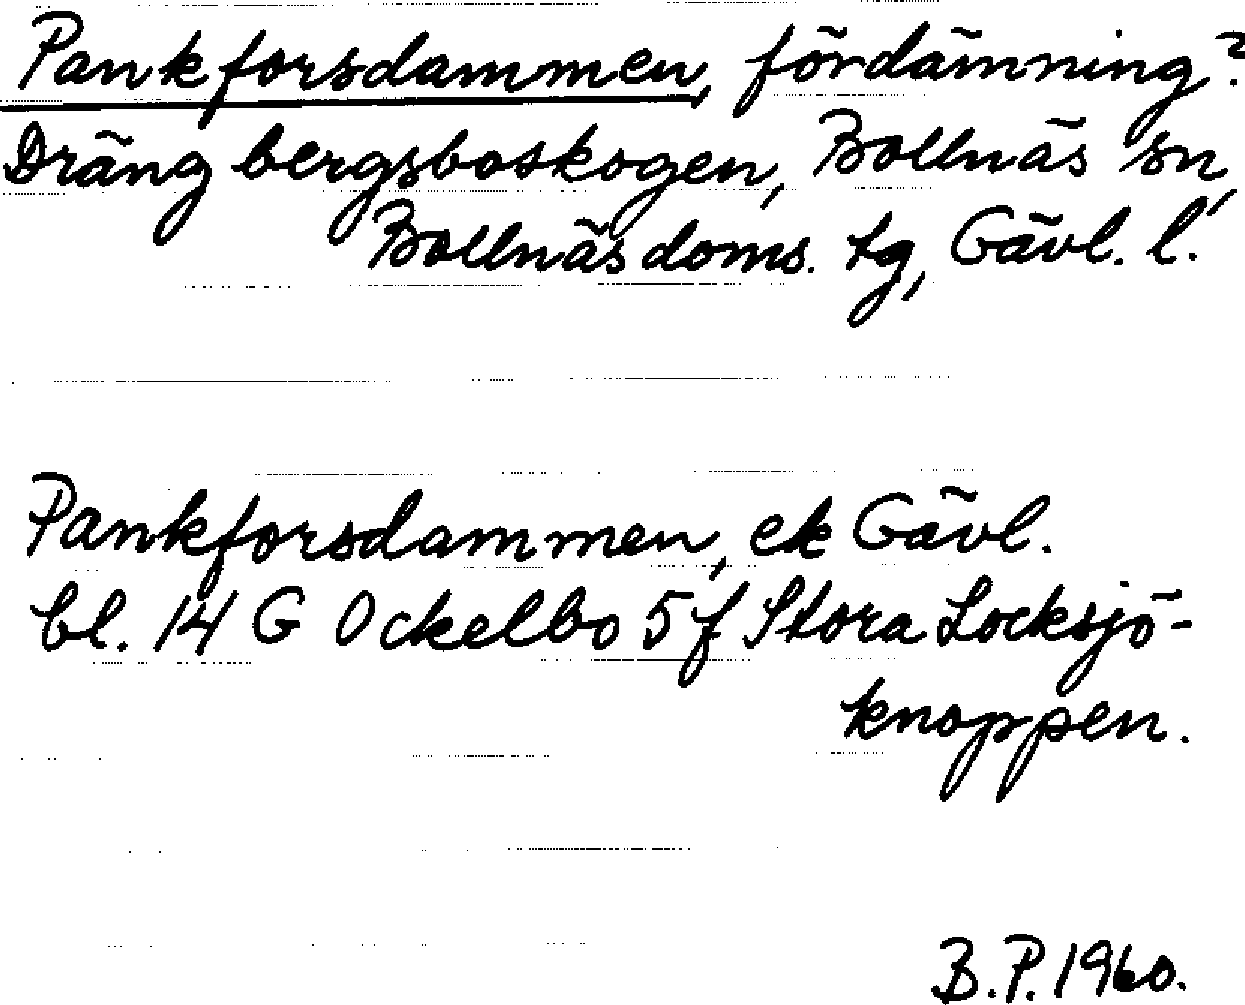 Pankforsdammen, fördämning?
Drängbergsboskogen, Bollnäs sn,
Bollnäs doms. tg, Gävl. l.
Pankforsdammen, ek Gävl.
bl. 14 G Ockelbo 5 f Stora Locksjö-
knoppen.
B.P. 1960.